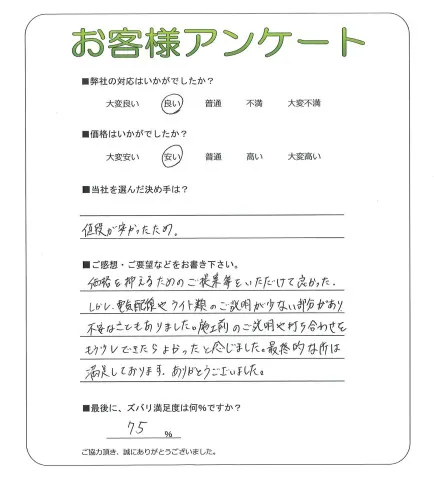 お客様アンケート
■弊社の対応はいかがでしたか?
大変良い 良い 普通 不満 大変不満
■価格はいかがでしたか?
大変安い 安い 普通 高い 大変高い
■当社を選んだ決め手は?
値段が安かったため。
■ご感想・ご要望などをお書き下さい。
価格を抑えるためのご提案等をいただけて良かった。
しかし、電気配線やライト類のご説明が少ない部分があり
不安なこともありました。施工前のご説明や打ち合わせを
もう少しできたらよかったと感じました。最終的な所は
満足しております、ありがとうございました。
■最後に、ズバリ満足度は何%ですか?
75 %
ご協力頂き、誠にありがとうございました。